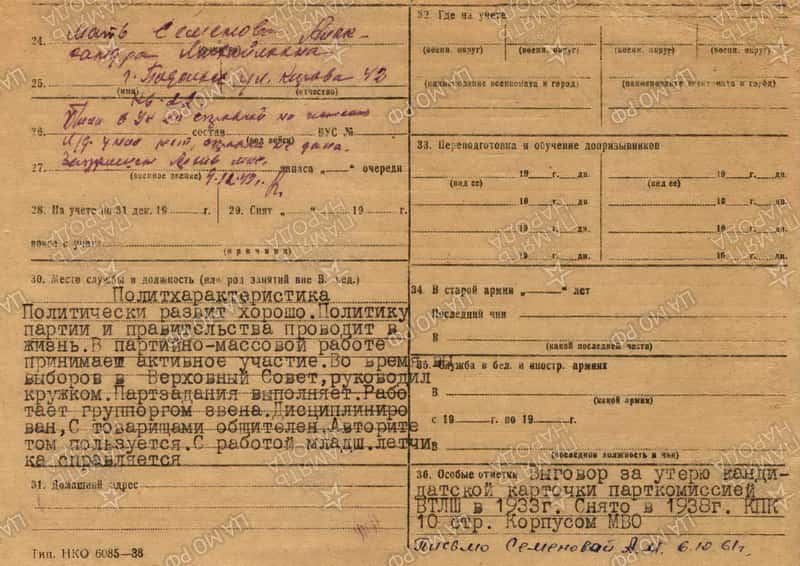 24. Мать Семенова Алек-
сандра Михайловна
25. г. Подольск ул. Кирова 42
(имя) (отчество)
кв. 22.
26. состав (род войск) ВУС №
27. запаса „ “ очереди
(военное звание) 9.12.49г.
28. На учете по 31 дек. 19 г. 29. Снят „ “ 19 г.
вовсе с учета
(причина)
30. Место службы и должность (или род занятий вне В. вед.)
Политхарактеристика
Политически развит хорошо.Политику
партии и правительства проводит в
жизнь.В партийно-массовой работе
принимаеш активное участие.Во время
выборов в Верховный Совет,руководил
кружком.Партзадания выполняет.Рабо
тает группоргом звена.Дисциплиниро
ван,С товарищами общителен.Авторите
том пользуется.С работой младш.летчи
ка справляется
31. Домашний адрес
Тип. НКО 6085—38
32. Где на учете
(военн. округ) (военн. округ) (военн. округ) (военн. округ)
(наименование военкомата и город) (наименование военкомата и город)
33. Переподготовка и обучение допризывников
19 г. дн. 19 г. дн.
(вид ее) (вид ее)
19 г. дн. 19 г. дн.
19 г. дн. 19 г. дн.
19 г. дн. 19 г. дн.
34. В старой армии „ “ лет
Последний чин
В
(какой последней части)
35. Служба в бел. и иностр. армиях
В
(какой армии)
с 19 г. по 19 г.
в
(последняя должность и чин)
36. Особые отметки Выговор за утерю канди-
датской карточки парткомиссией
ВТЛШ в 1933г. Снято в 1938г. КПК
10 стр. Корпусом МВО
Письмо Семеновой А.М. 6.10 61г.